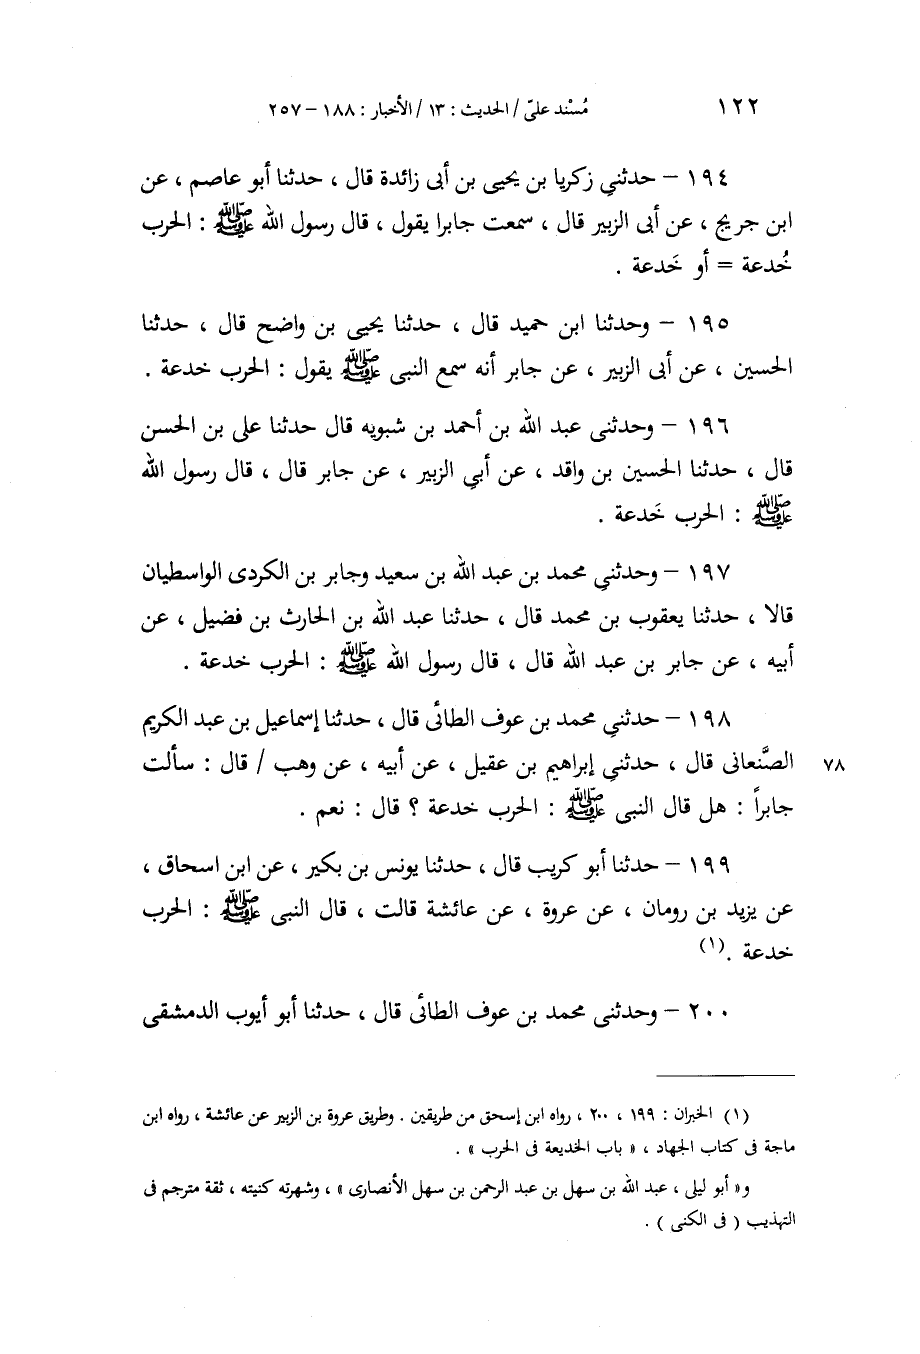 ١٢٢ مُسْند عليّ / الحديث : ١٣ / الأخبار : ١٨٨ – ٢٥٧
١٩٤ – حدثني زكريا بن يحيى بن أبى زائدة قال ، حدثنا أبو عاصم ، عن
ابن جريج ، عن أبى الزبير قال ، سمعت جابرا يقول ، قال رسول الله ﷺ : الحرب
خُدعة = أو خَدعة .
١٩٥ – وحدثنا ابن حميد قال ، حدثنا يحيى بن واضح قال ، حدثنا
الحسين ، عن أبى الزبير ، عن جابر أنه سمع النبى ﷺ يقول : الحرب خدعة .
١٩٦ – وحدثنى عبد الله بن أحمد بن شبويه قال حدثنا على بن الحسن
قال ، حدثنا الحسين بن واقد ، عن أبي الزبير ، عن جابر قال ، قال رسول الله
ﷺ : الحرب خَدعة .
١٩٧ – وحدثني محمد بن عبد الله بن سعيد وجابر بن الكردى الواسطيان
قالا ، حدثنا يعقوب بن محمد قال ، حدثنا عبد الله بن الحارث بن فضيل ، عن
أبيه ، عن جابر بن عبد الله قال ، قال رسول الله ﷺ : الحرب خدعة .
١٩٨ – حدثني محمد بن عوف الطائى قال ، حدثنا إسماعيل بن عبد الكريم
الصَّنعانى قال ، حدثني إبراهيم بن عقيل ، عن أبيه ، عن وهب / قال : سألت
٧٨
جابراً : هل قال النبى ﷺ : الحرب خدعة ؟ قال : نعم .
١٩٩ – حدثنا أبو كريب قال ، حدثنا يونس بن بكير ، عن ابن اسحاق ،
عن يزيد بن رومان ، عن عروة ، عن عائشة قالت ، قال النبى ﷺ : الحرب
خدعة .(١)
٢٠٠ – وحدثنى محمد بن عوف الطائى قال ، حدثنا أبو أيوب الدمشقى
(١) الخبران : ١٩٩ ، ٢٠٠ ، رواه ابن إسحق من طريقين . وطريق عروة بن الزبير عن عائشة ، رواه ابن
ماجة فى كتاب الجهاد ، « باب الخديعة فى الحرب » .
و« أبو ليلى ، عبد الله بن سهل بن عبد الرحمن بن سهل الأنصارى » ، وشهرته كنيته ، ثقة مترجم فى
التهذيب ( فى الكنى ) .